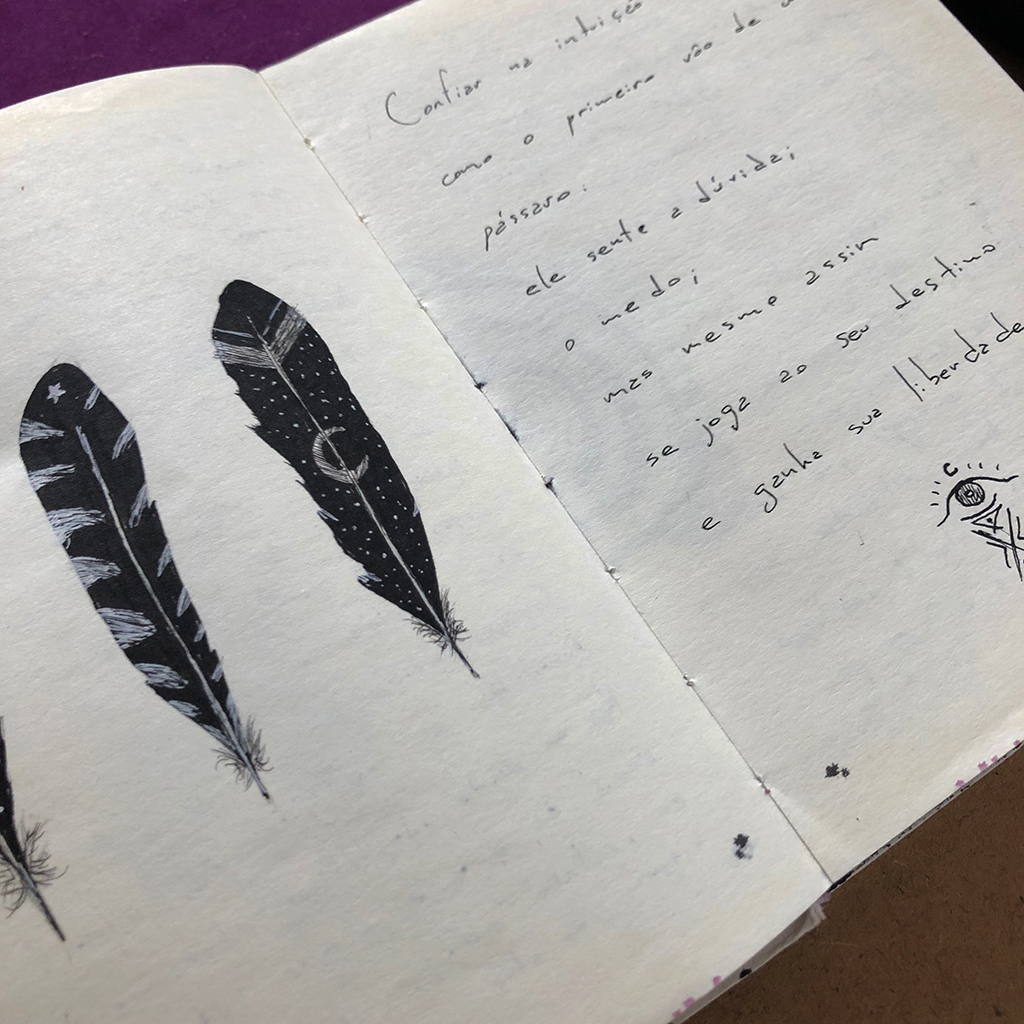 Confiar na intuição
como o primeiro vôo de
pássaro:
ele sente a dúvida;
o medo;
mas mesmo assim
se joga ao seu destino
e ganha sua liberdade